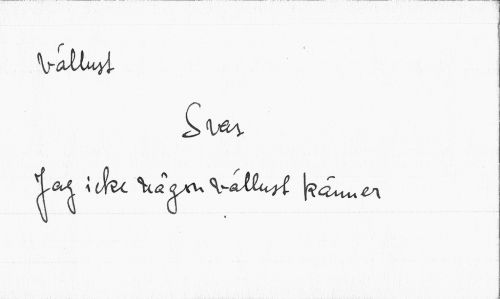 vällust
Svar
Jag icke någon vällust känner